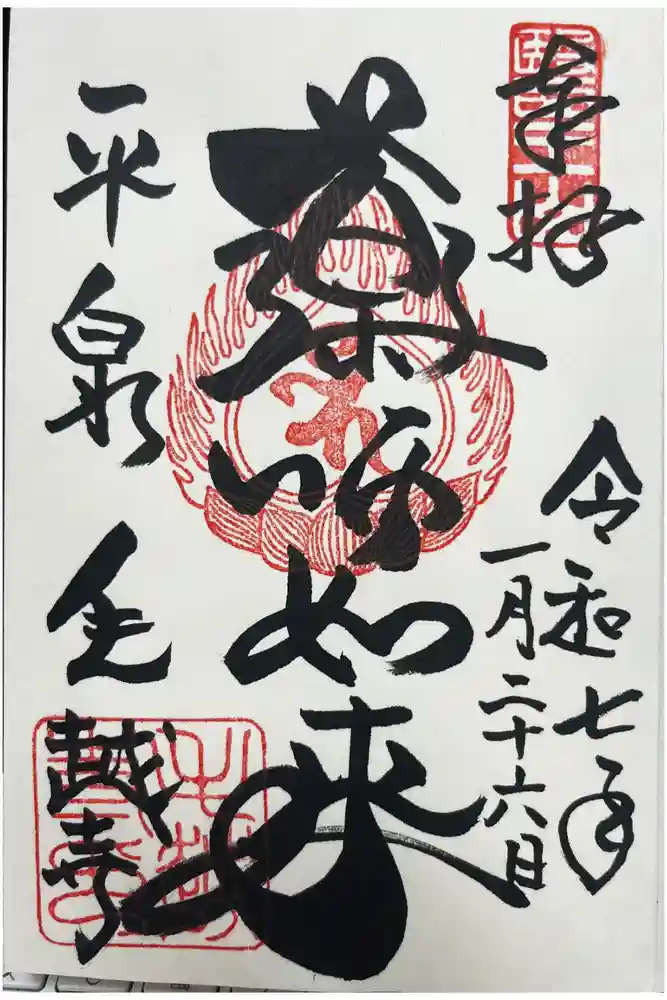 奉拝
令和七年
一月二十六日
薬師如来
平泉毛越寺